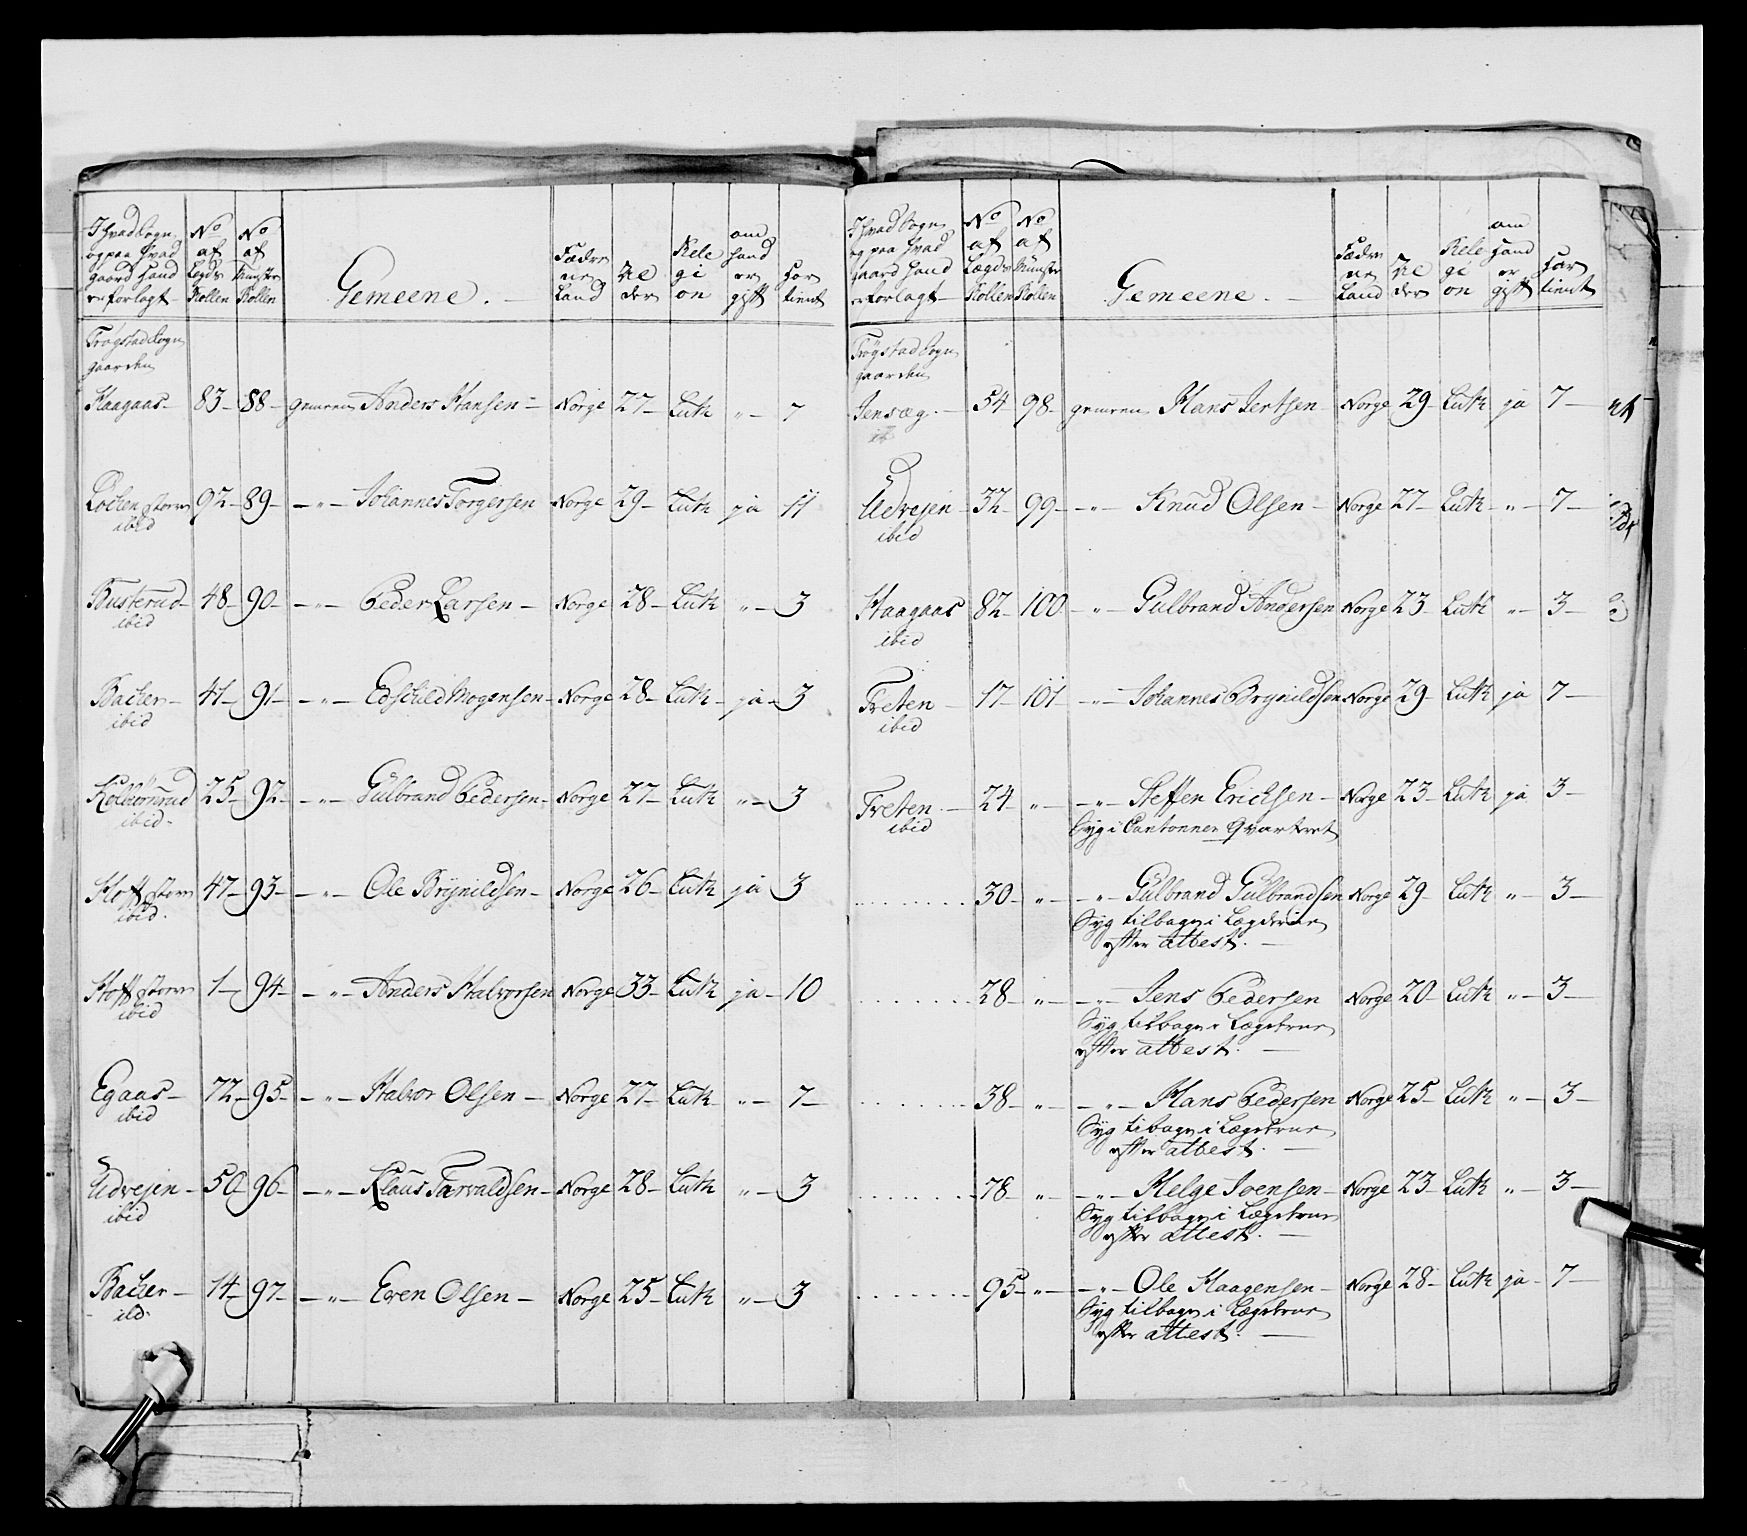 I hvad Sogn og paa hvad gaard hand er forlagt | No af Lægds Rollen | No af Munster Rollen | Gemeene. | Fædrene Land | Alder | Religion | om hand er gift | har tient
Trøgstad Sogn
gaarden
Haagaas - 83 - 88 - gemeen Anders Hansen - Norge 27 - Luth " - 7
92 - 89 - " - Johannes Torgersen Norge 29 - Luth ja - 11
ibid
Busterud - 48 - 90 - " - Peder Larsen - Norge 28 - Luth " - 3
ibid
Bacher - 41 - 91 - " - Mogensen - Norge 28 - Luth - ja - 3
ibid
25 - 92 - " - Gulbrand Pedersen - Norge 27 - Luth " - 3
ibid
47 - 93 - " - Ole Brynildsen - Norge 26 - Luth ja 3
ibid
1 - 94 - " - Anders Halvorsen Norge 33 - Luth ja - 10
ibid
Egaas - 72 - 95 - " - Halvor Olsen - Norge 27 - Luth " - 7
ibid
Udvejen - 50 - 96 - " - Klaus Tarvaldsen - Norge 28 - Luth " - 3
ibid
Bacher - 14 - 97 - " - Even Olsen - Norge 25 - Luth " - 3
I hvad Sogn og paa hvad gaard hand er forlagt | No af Lægds Rollen | No af Munster Rollen | Gemeene. | Fædrene Land | Alder | Religion | om hand er gift | har tient
Trøgstad Sogn
gaarden
54 98 - gemeen Hans Jertsen - Norge 29 - Luth ja 7
Udvejen - 32 - 99 - " - Knud Olsen - Norge 27 - Luth " - 7
ibid
Haagaas 82 - 100 - " - Gulbrand Andersen Norge 23 Luth " - 3
ibid
Treten - 17 - 101 - " - Johannes Brynildsen Norge 29 - Luth ja 7
ibid
Treten - 24 - " - " - Steffen Ericksen - Norge 23 - Luth ja 3
ibid
Syg i Cantonner Qvarteret
30 - " - " - Gulbrand Gulbrandsen Norge 29 - Luth " - 3
Syg tilbage i Lægderne
efter attest.
28 - " - " - Jens Pedersen Norge 20 - Luth " - 3
Syg tilbage i Lægderne
efter attest.
38 - " - " - Hans Pedersen Norge 25 - Luth " - 3
Syg tilbage i Lægderne
efter attest.
78 - " - " - Helge Joensen - Norge 23 - Luth " - 3
Syg tilbage i Lægderne
efter attest.
95 - " - " - Ole Haagensen - Norge 28 - Luth ja - 7
Syg tilbage i Lægderne
efter attest.